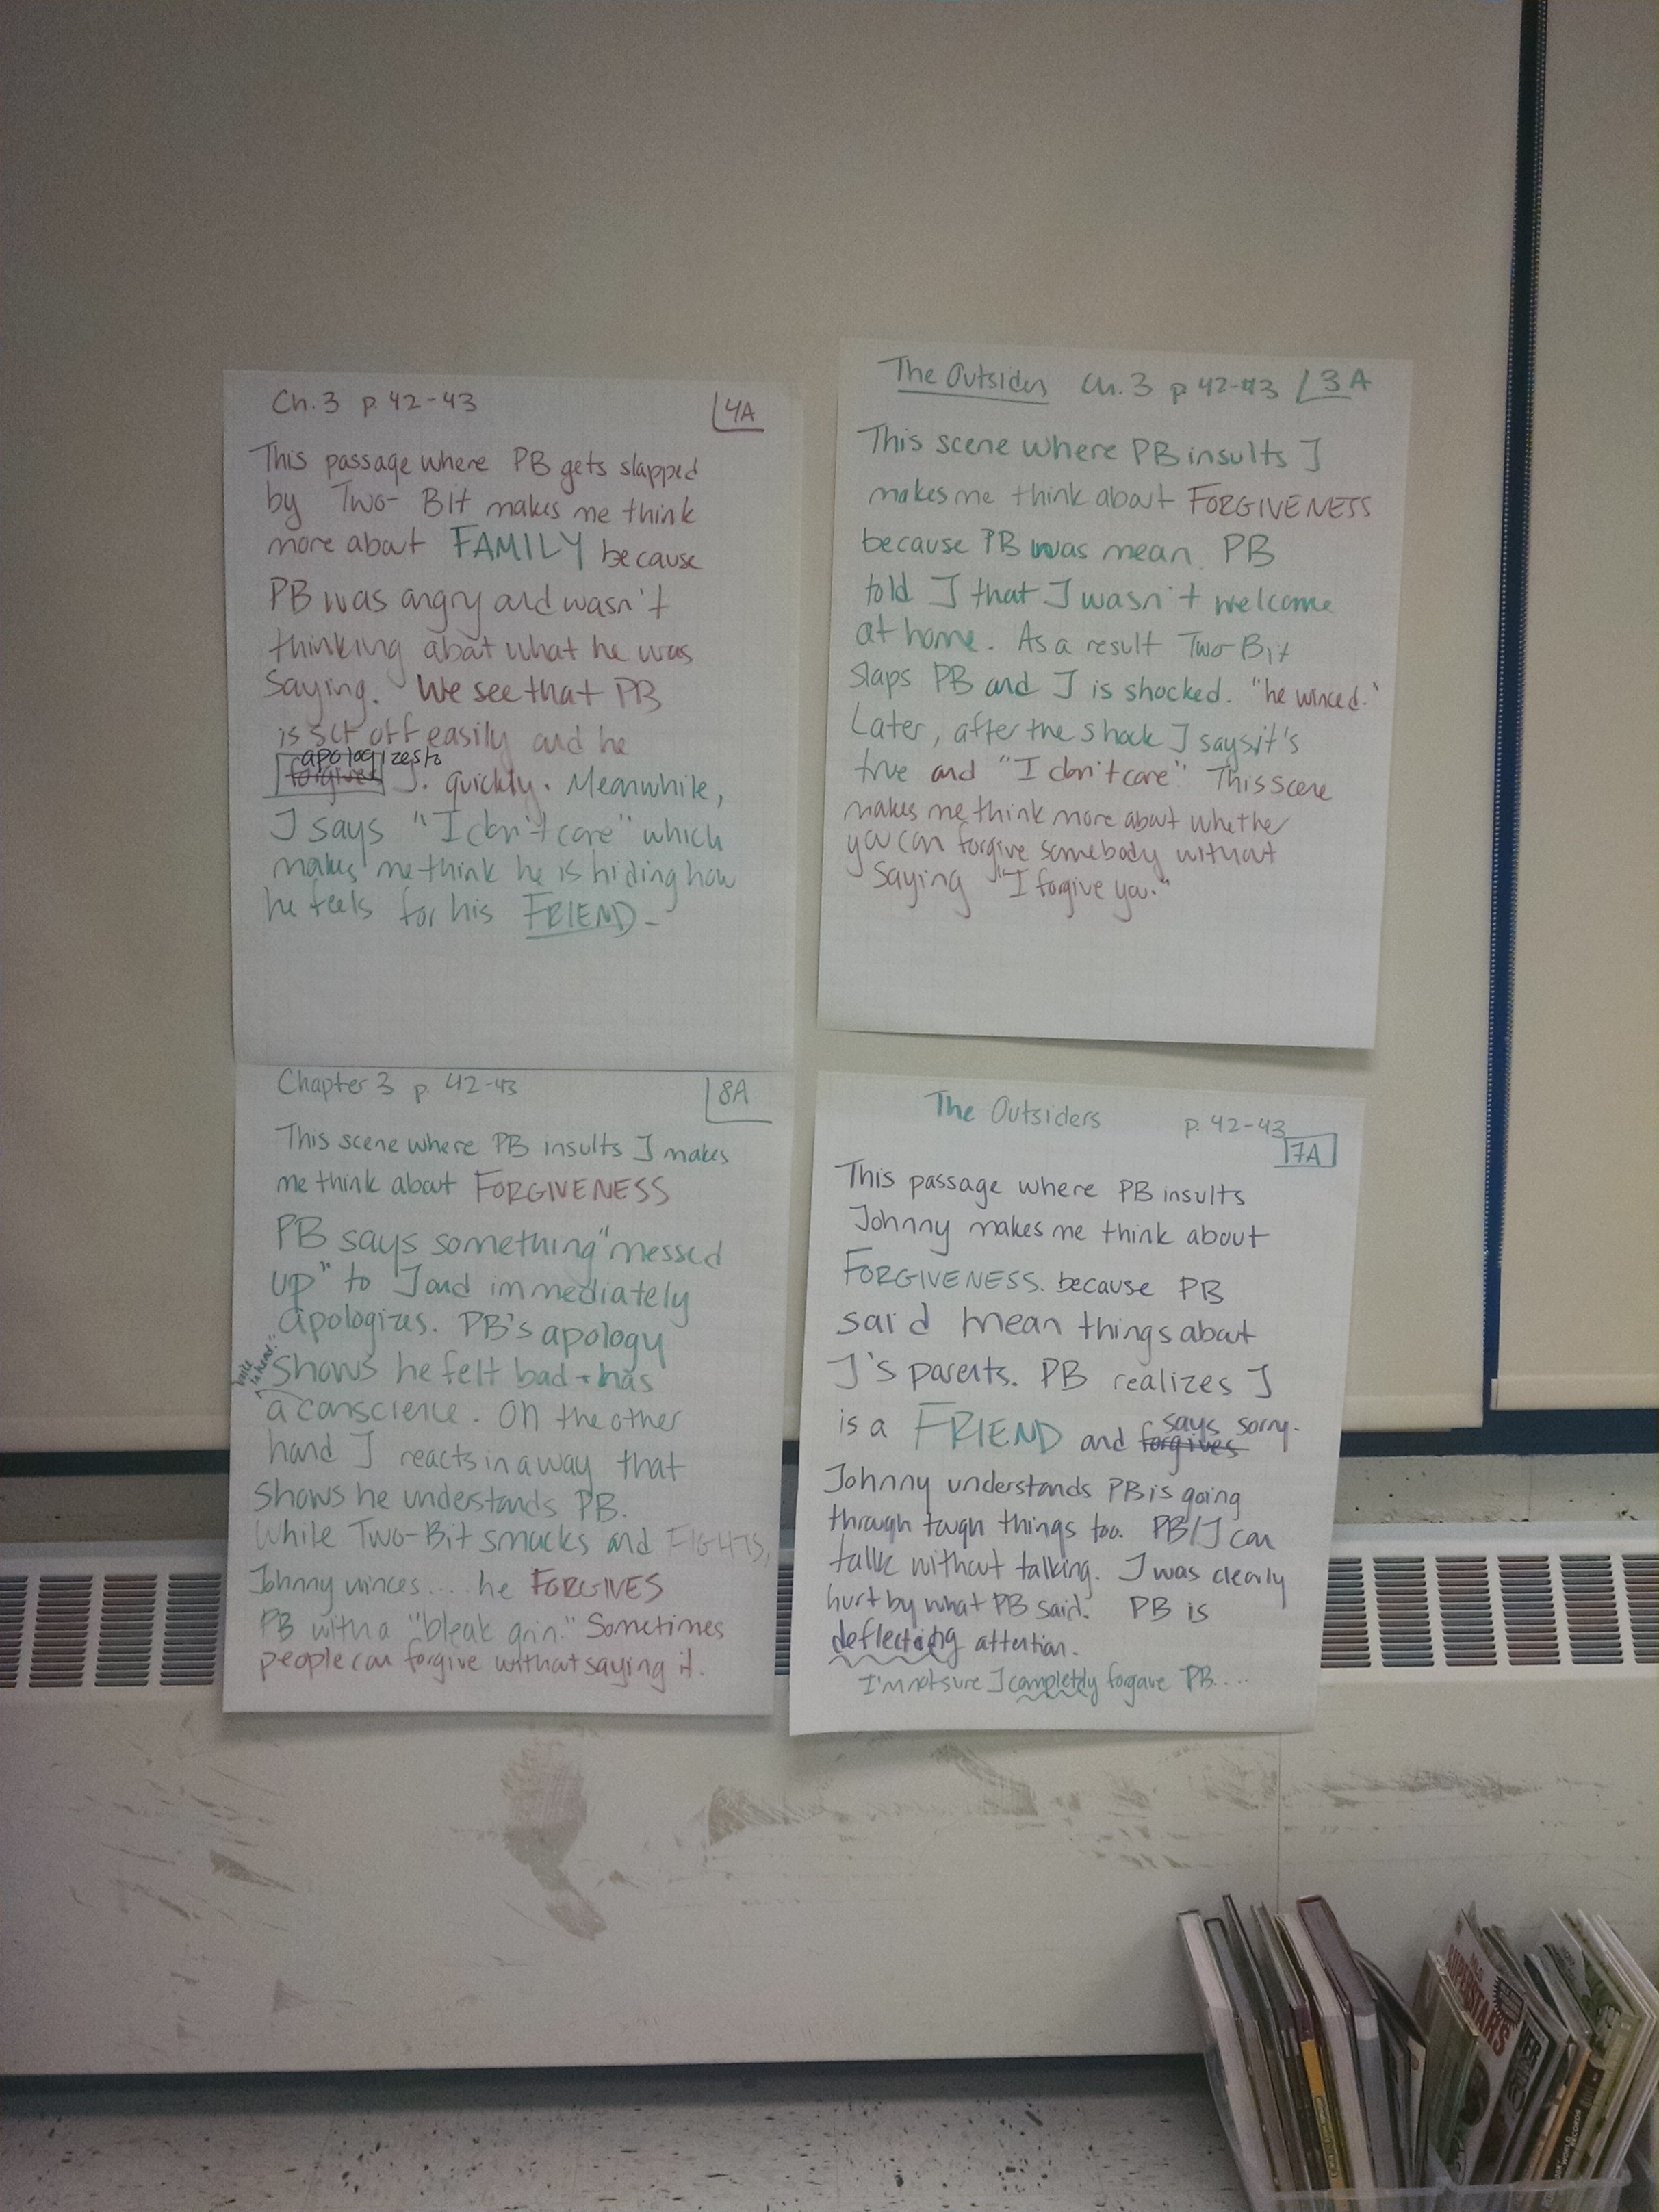 Ch. 3 p. 42-43
4A
This passage where PB gets slapped
by Two-Bit makes me think
more about FAMILY because
PB was angry and wasn't
thinking about what he was
saying. We see that PB
is set off easily and he
apologizes to
forgives J. quickly. Meanwhile,
J says "I don't care" which
makes me think he is hiding how
he feels for his FRIEND-
The Outsiders Ch. 3 p 42-43 3A
This scene where PB insults J
makes me think about FORGIVENESS
because PB was mean. PB
told J that J wasn't welcome
at home. As a result Two-Bit
slaps PB and J is shocked. "he winced."
Later, after the shock J says it's
true and "I don't care". This scene
makes me think more about whether
you can forgive somebody without
saying "I forgive you."
Chapter 3 p. 42-43
8A
This scene where PB insults J makes
me think about FORGIVENESS
PB says something "messed
up" to J and immediately
apologizes. PB's apology
shows he felt bad + has
a conscience. On the other
hand J reacts in a way that
shows he understands PB.
While Two-Bit smacks and FIGHTS,
Johnny winces.... he FORGIVES
PB with a "bleak grin." Sometimes
people can forgive without saying it.
The Outsiders p. 42-43
7A
This passage where PB insults
Johnny makes me think about
FORGIVENESS. because PB
said mean things about
J's parents. PB realizes J
says sorry.
is a FRIEND and forgives
Johnny understands PB is going
through tough things too. PB/J can
talk without talking. J was clearly
hurt by what PB said. PB is
deflecting attention.
I'm not sure J completely forgave PB....
SUPERSTARS
WORLD
RECORDS